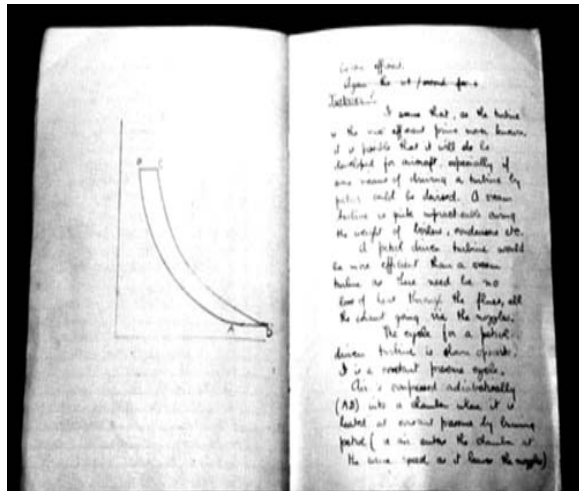 B C
A D
is one efficient.
Again the wt/ for
Turbines :-
It seems that, as the turbine
is the most efficient prime mover known,
it is possible that it will be
developed for aircraft, especially if
some means of driving a turbine by
petrol could be devised. A steam
turbine is quite impracticable owing
the weight of boilers, condensers etc.
A petrol driven turbine would
be more efficient than a steam
turbine as there need be no
loss of heat through the flues, all
the exhaust going via the nozzles.
The cycle for a petrol
driven turbine is shown opposite.
It is a constant pressure cycle.
Air is compressed adiabatically
(AB) into a chamber where it is
heated at constant pressure by burning
petrol (ie air enters the chamber at
the same speed as it leaves the nozzles)